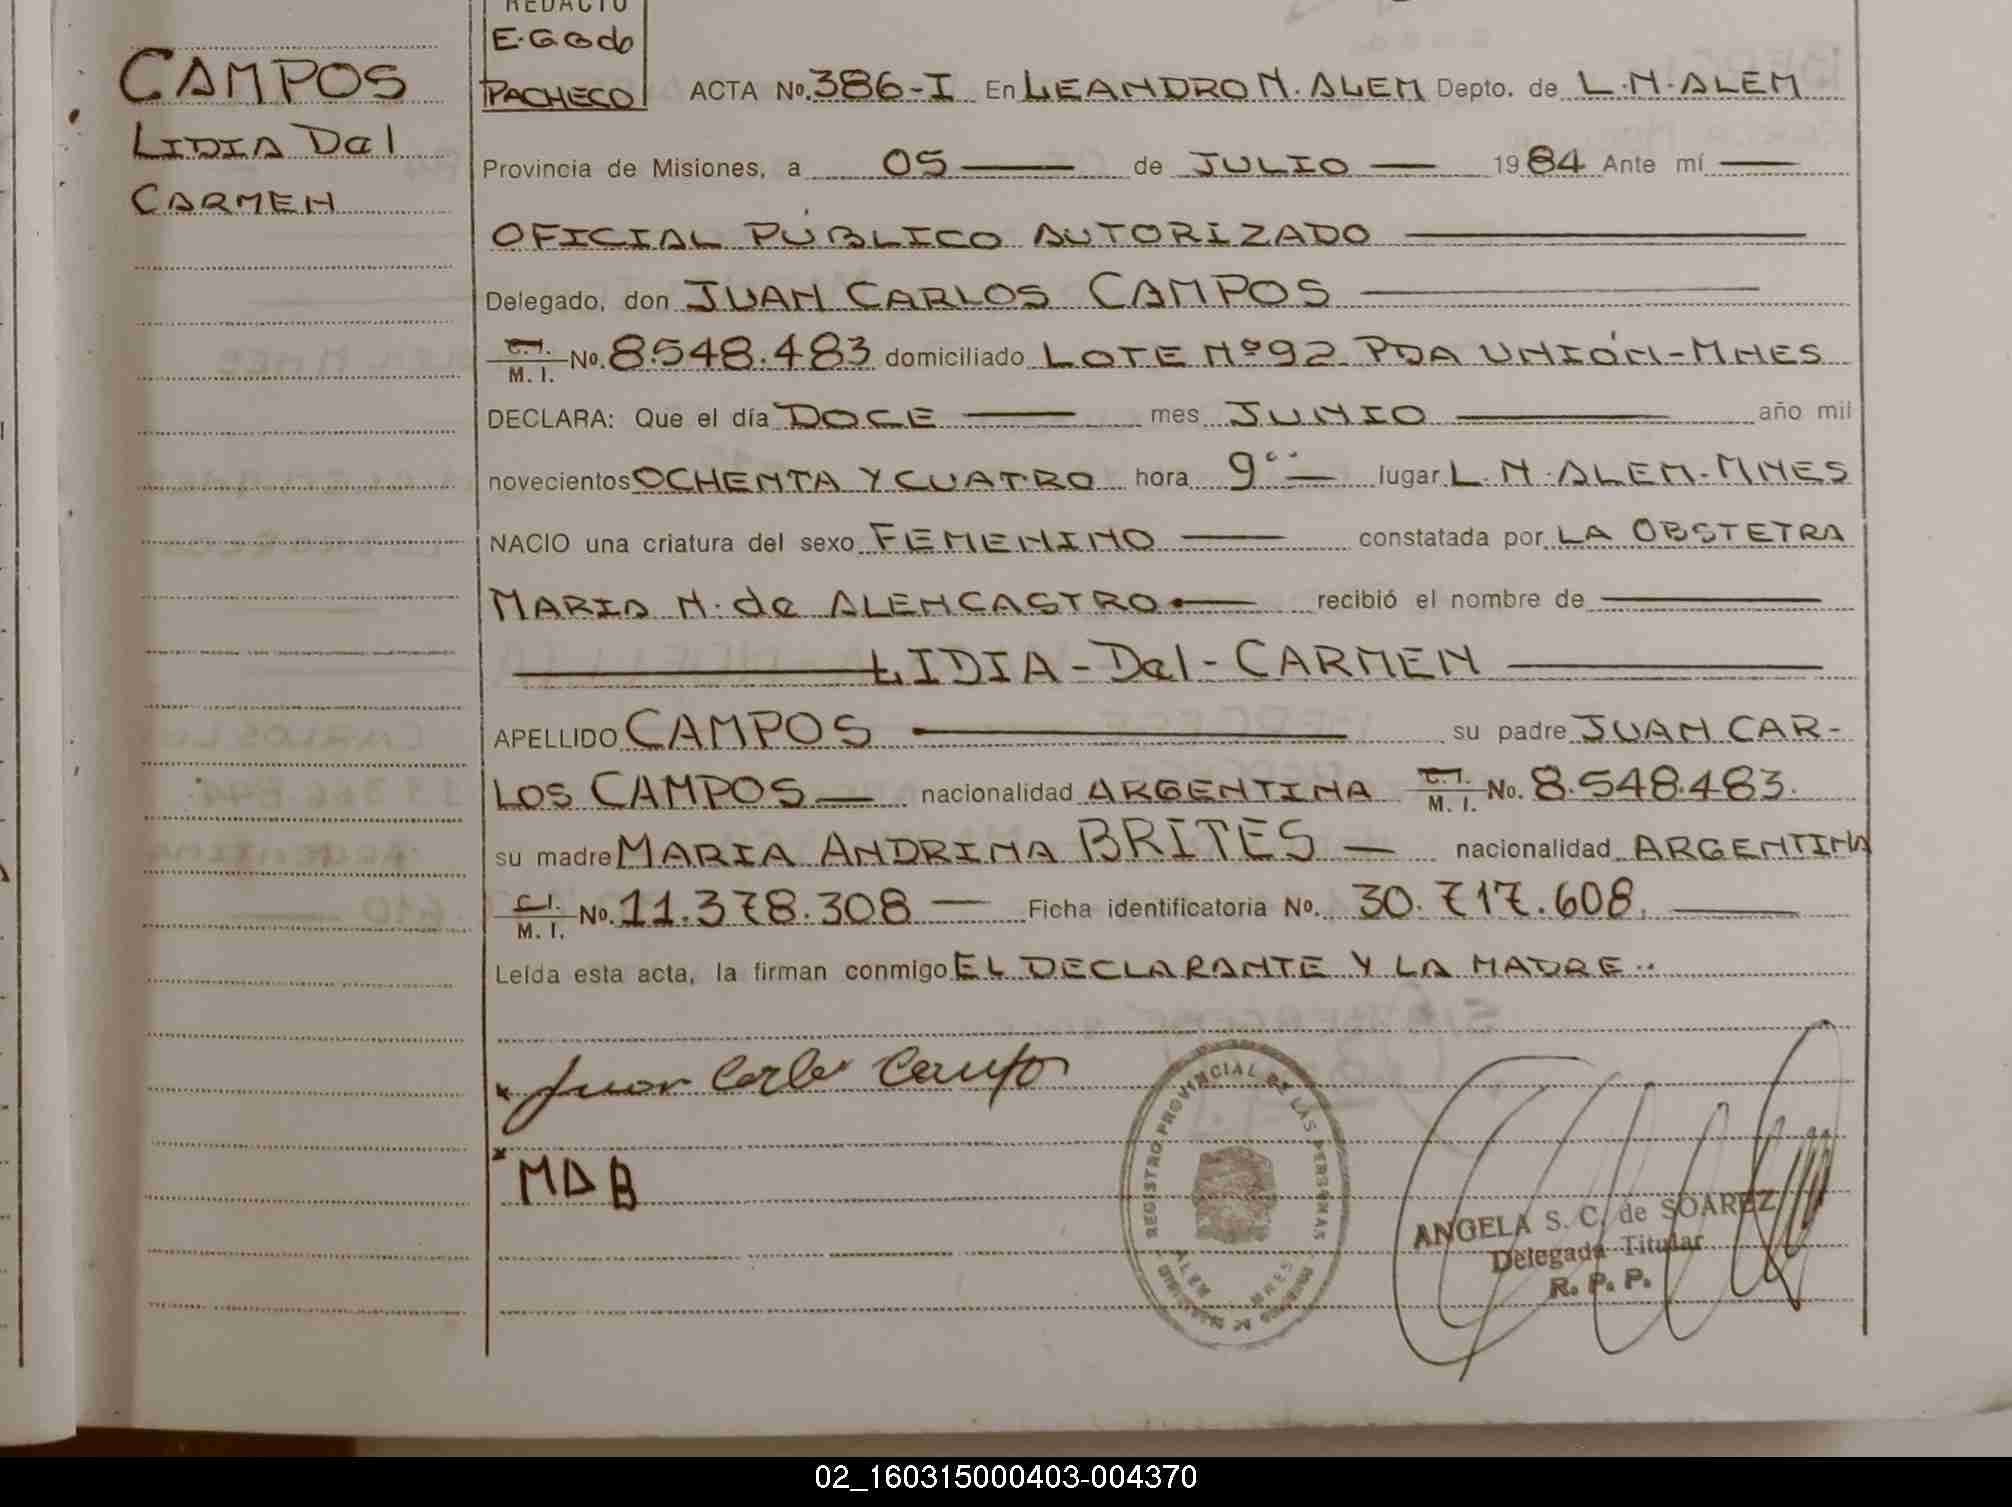 REDACTO
E. Godo
PACHECO
CAMPOS
LIDIA Del
CARMEN
ACTA No. 386-I En LEANDRO N. ALEM Depto. de L.N.ALEM
Provincia de Misiones, a 05 de JULIO 1984 Ante mí
OFICIAL PÚBLICO AUTORIZADO
Delegado, don JUAN CARLOS CAMPOS
C.I. M. I. No. 8.548.483 domiciliado LOTE Nº 92 PDA UNIÓN-MNES
DECLARA: Que el día DOCE mes JUNIO año mil
novecientos OCHENTA Y CUATRO hora 9 lugar L.N.ALEM-MNES
NACIO una criatura del sexo FEMENINO constatada por LA OBSTETRA
MARIA N. de ALENCASTRO. recibió el nombre de
LIDIA-Del-CARMEN
APELLIDO CAMPOS su padre JUAN CAR-
LOS CAMPOS nacionalidad ARGENTINA C.I. M. I. No. 8.548.483.
su madre MARIA ANDRINA BRITES nacionalidad ARGENTINA
C.I. M. I. No. 11.378.308 Ficha identificatoria No. 30.717.608.
Leída esta acta, la firman conmigo EL DECLARANTE Y LA MADRE..
Juan Carlos Campos
MAB
REGISTRO PROVINCIAL DE LAS PERSONAS
ALEM MNES
ANGELA S. C. de SOAREZ
Delegada Titular
R. P. P.
02_160315000403-004370